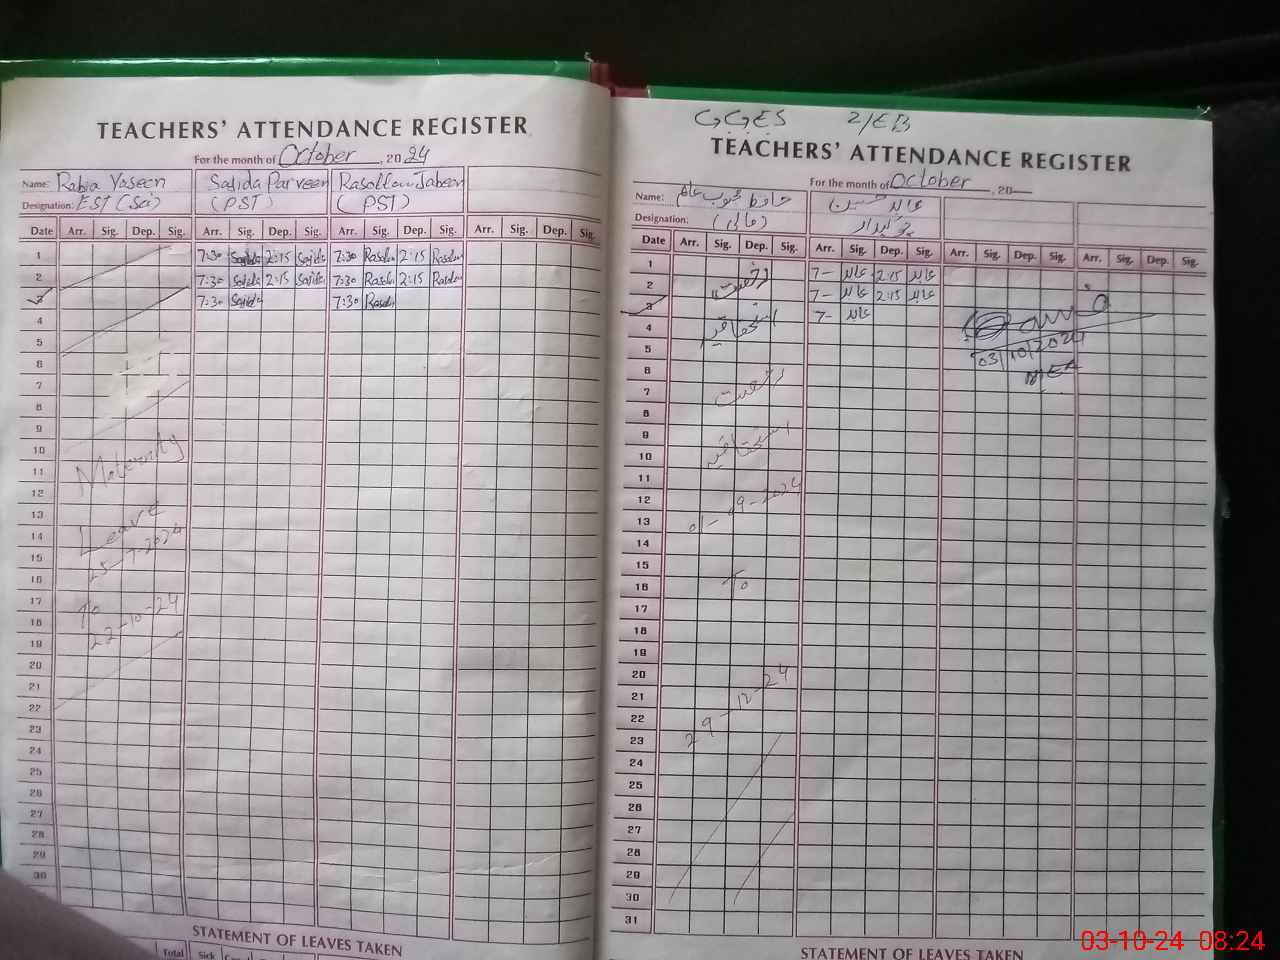 TEACHERS' ATTENDANCE REGISTER
For the month of October, 2024
Name: Rabia Yaseen Sajida Parveen Jabeen
Designation: EST (Sci) (PST) (PST)
Date Arr. Sig. Dep. Sig. Arr. Sig. Dep. Sig. Arr. Sig. Dep. Sig. Arr. Sig. Dep. Sig.
1 7:30 Sajida 2:15 Sajida 7:30 2:15
2 7:30 Sajida 2:15 Sajida 7:30 2:15
3 7:30 Sajida 7:30
4
5
6
7
8
9
10
11 Maternity
12
13
14 Leave
15 25-7-2024
16
17 To
18 22-10-24
19
20
21
22
23
24
25
26
27
28
29
30
STATEMENT OF LEAVES TAKEN
Total Sick
GGES 2/EB
TEACHERS' ATTENDANCE REGISTER
For the month of October, 20
Name: حافظ محبوب عالم عابد حسین
Designation: چوکیدار
Date Arr. Sig. Dep. Sig. Arr. Sig. Dep. Sig. Arr. Sig. Dep. Sig. Arr. Sig. Dep. Sig.
1 7- عابد 2:15 عابد
2 رخصت 7- عابد 2:15 عابد
3 7- عابد
4 استحقاقیہ
5 03/10/2024
6 MEA
7 رخصت
8
9
10 استحقاقیہ
11
12
13 01-09-2024
14
15
16 To
17
18
19
20
21
22 29-12-24
23
24
25
26
27
28
29
30
31
STATEMENT OF LEAVES TAKEN
03-10-24 08:24